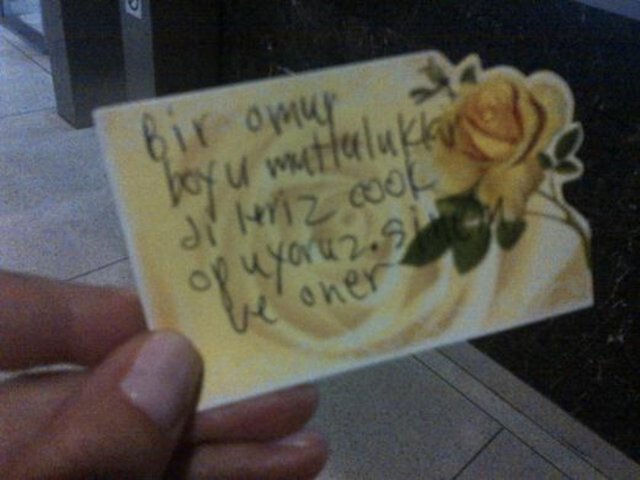 Bir omur
boyu mutluluklar
dileriz cook
opuyoruz. sinem
ve oner